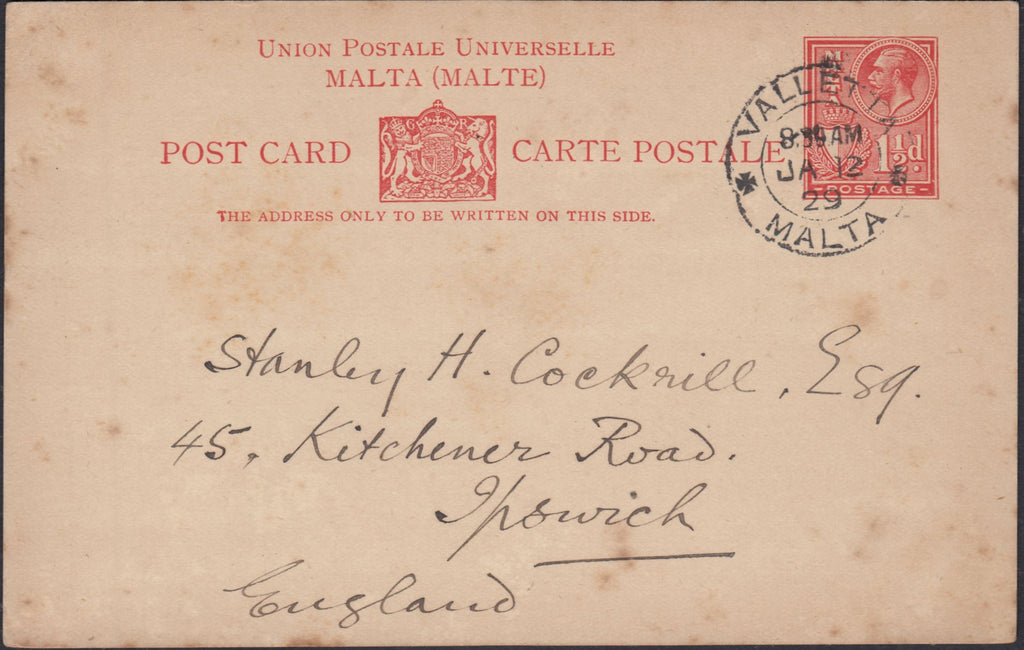 UNION POSTALE UNIVERSELLE
MALTA (MALTE)
G R
POST CARD
CARTE POSTALE
THE ADDRESS ONLY TO BE WRITTEN ON THIS SIDE.
1½d.
POSTAGE
VALLETTA
AM
JA 12
29
MALTA
Stanley H. Cockrill, Esq.
45, Kitchener Road.
Ipswich
England